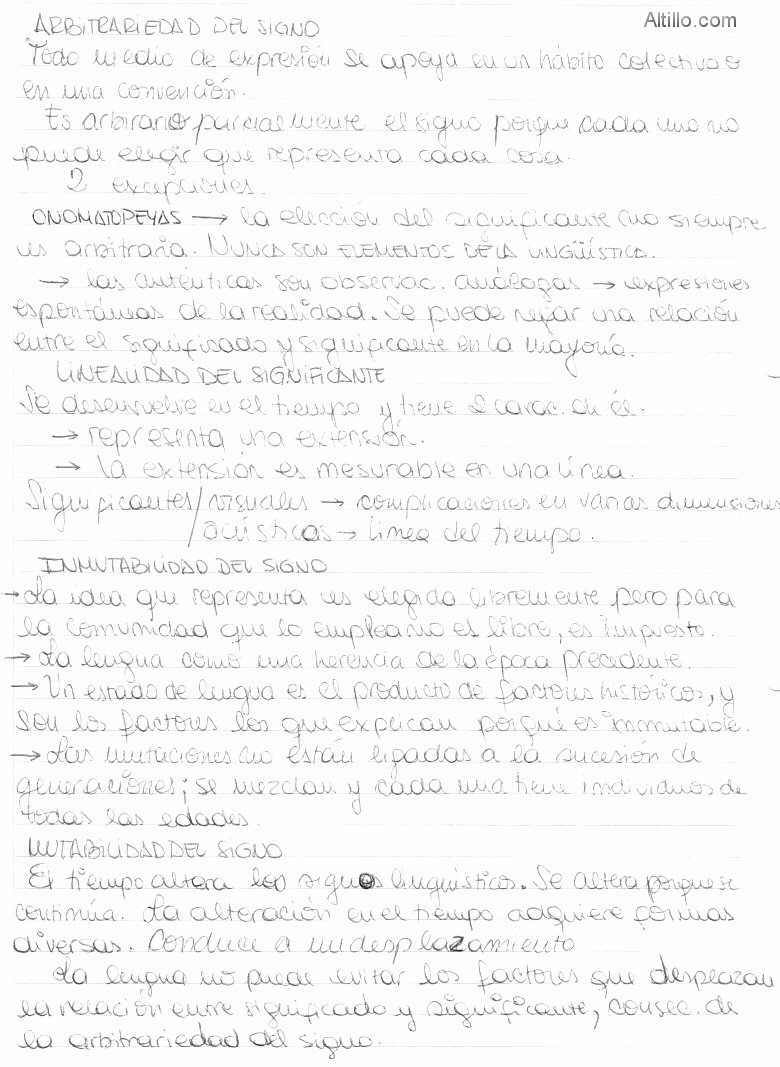 Altillo.com
ARBITRARIEDAD DEL SIGNO
Todo medio de expresión se apoya en un hábito colectivo o
en una convención.
Es arbirario parcialmente el signo porque cada uno no
puede elegir que representa cada cosa.
2 excepciones.
ONOMATOPEYAS → la elección del significante no siempre
es arbitraria. NUNCA SON ELEMENTOS DE LA LINGÜÍSTICA.
→ las auténticas son observac. análogas → expresiones
espontáneas de la realidad. Se puede negar una relación
entre el significado y significante en la mayoría.
LINEALIDAD DEL SIGNIFICANTE
Se desenvuelve en el tiempo y tiene 2 carac. de él.
→ representa una extensión.
→ la extensión es mesurable en una línea.
Significantes/visuales → complicaciones en varias dimensiones
/acústicas → línea del tiempo.
INMUTABILIDAD DEL SIGNO
→ La idea que representa es elegida libremente pero para
la comunidad que lo emplea no es libre, es impuesto.
→ La lengua como una herencia de la época precedente.
→ Un estado de lengua es el producto de factores históricos, y
son los factores los que explican porqué es inmutable.
→ Las mutaciones no están ligadas a la sucesión de
generaciones; se mezclan y cada una tiene individuos de
todas las edades.
MUTABILIDAD DEL SIGNO
El tiempo altera los signos lingüísticos. Se altera porque se
continúa. La alteración en el tiempo adquiere formas
diversas. Conduce a un desplazamiento
La lengua no puede evitar los factores que desplazan
la relación entre significado y significante, consec. de
la arbitrariedad del signo.